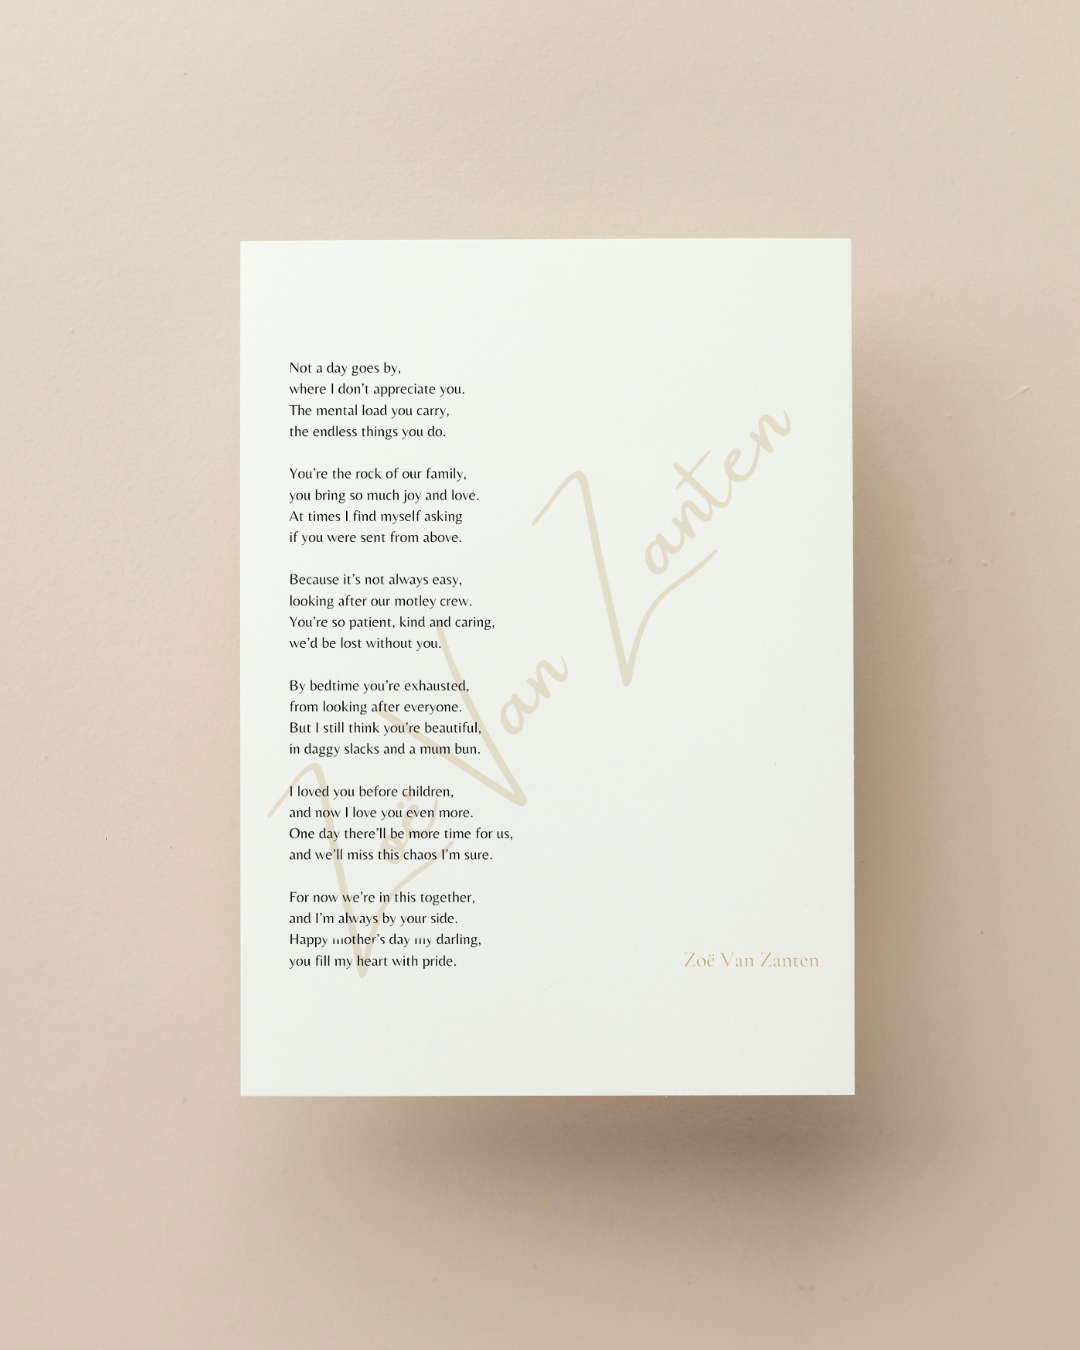 Not a day goes by,
where I don't appreciate you.
The mental load you carry,
the endless things you do.

You're the rock of our family,
you bring so much joy and love.
At times I find myself asking
if you were sent from above.

Because it's not always easy,
looking after our motley crew.
You're so patient, kind and caring,
we'd be lost without you.

By bedtime you're exhausted,
from looking after everyone.
But I still think you're beautiful,
in daggy slacks and a mum bun.

I loved you before children,
and now I love you even more.
One day there'll be more time for us,
and we'll miss this chaos I'm sure.

For now we're in this together,
and I'm always by your side.
Happy mother's day my darling,
you fill my heart with pride.

Zoë Van Zanten
Zoë Van Zanten